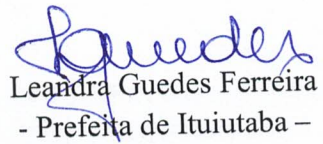 Leandra Guedes Ferreira
- Prefeita de Ituiutaba –